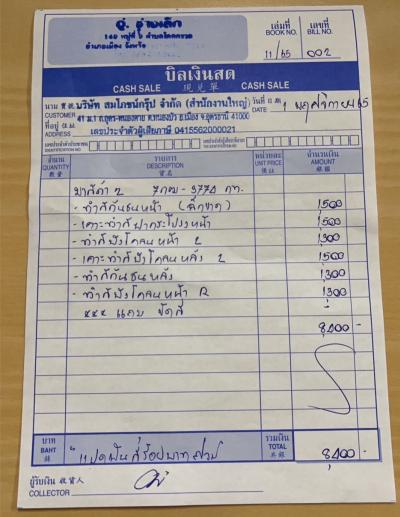 อู่ ช่างเล็ก
เล่มที่ เลขที่
BOOK NO. BILL NO.
11/65 002
บิลเงินสด
CASH SALE 現 兑 單 CASH SALE
นาม บริษัท สมโภชน์กรุ๊ป จำกัด (สำนักงานใหญ่) วันที่
CUSTOMER DATE 1 พฤศจิกายน 65
ที่อยู่ อ.เมือง จ.อุดรธานี 41000
ADDRESS เลขประจำตัวผู้เสียภาษี 0415562000021
จำนวน รายการ หน่วยละ จำนวนเงิน
QUANTITY DESCRIPTION UNIT PRICE AMOUNT
มาสด้า 2 3774 กท.
- ทำสีกันชนหน้า (ฉีกขาด) 1500
- เคาะทำสีฝากระโปรงหน้า 1500
- ทำสีบังโคลนหน้า L 1300
- เคาะทำสีบังโคลนหลัง L 1500
- ทำสีกันชนหลัง 1300
- ทำสีบังโคลนหน้า R 1300
xxx แถม ขัดสี
8,400 -
บาท รวมเงิน
BAHT แปดพันสี่ร้อยบาทถ้วน TOTAL 8,400 -
ผู้รับเงิน
COLLECTOR